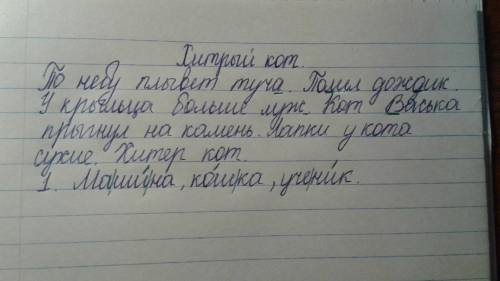 Хитрый кот.
По небу плывёт туча. Полил дождик.
У крыльца больше луж. Кот Васька
прыгнул на камень. Лапки у кота
сухие. Хитер кот.
1. Ма|ши́|на, ко́ш|ка, уче|ни́к.